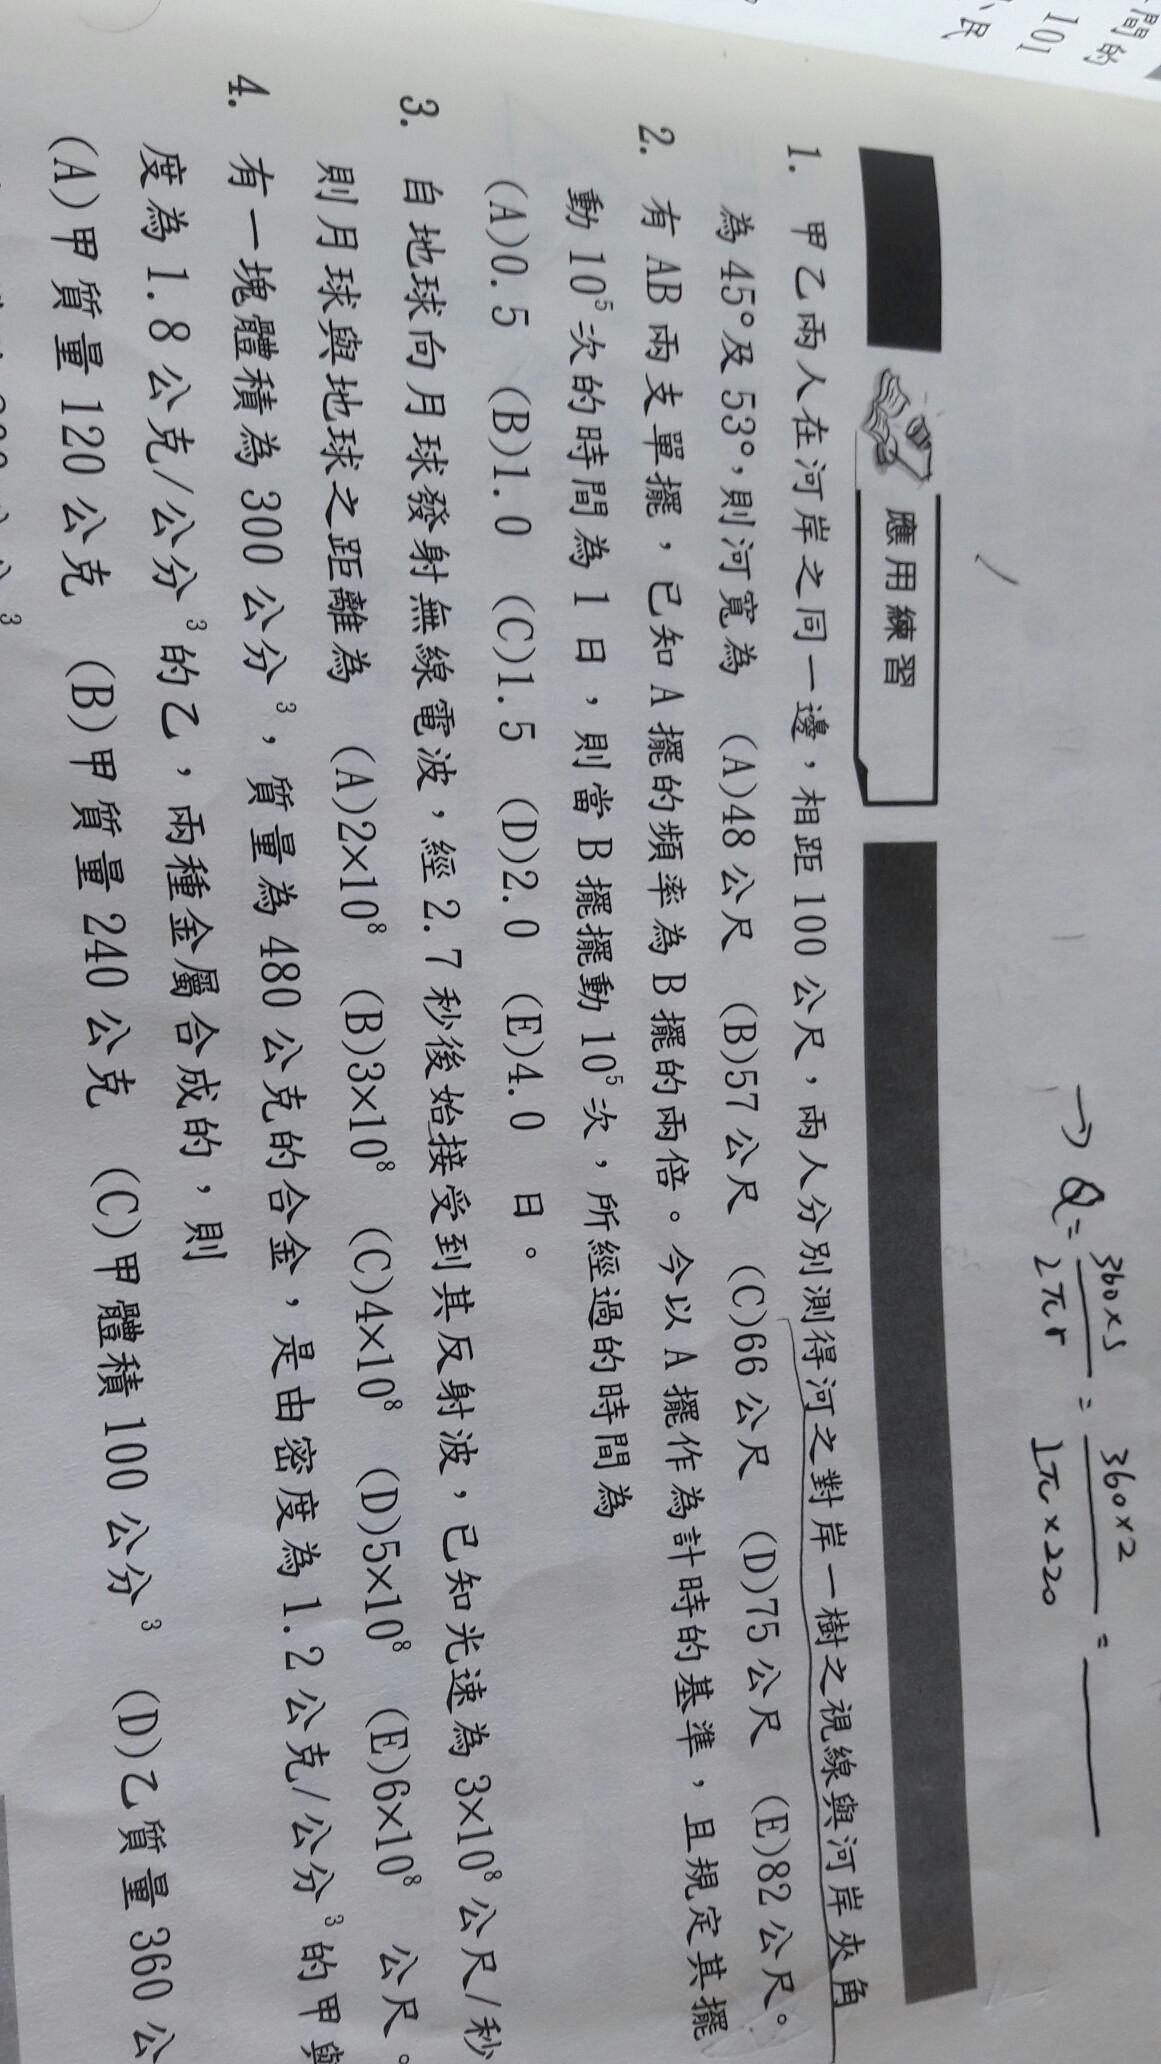 間的
101
民
→ Q = 360×S / 2πr = 360×2 / 2π×220 =
應用練習
1. 甲乙兩人在河岸之同一邊，相距100公尺，兩人分別測得河之對岸一樹之視線與河岸夾角
為45°及53°，則河寬為 (A)48公尺 (B)57公尺 (C)66公尺 (D)75公尺 (E)82公尺。
2. 有AB兩支單擺，已知A擺的頻率為B擺的兩倍。今以A擺作為計時的基準，且規定其擺
動10⁵次的時間為1日，則當B擺擺動10⁵次，所經過的時間為
(A)0.5 (B)1.0 (C)1.5 (D)2.0 (E)4.0 日。
3. 自地球向月球發射無線電波，經2.7秒後始接受到其反射波，已知光速為3×10⁸公尺/秒
則月球與地球之距離為 (A)2×10⁸ (B)3×10⁸ (C)4×10⁸ (D)5×10⁸ (E)6×10⁸ 公尺。
4. 有一塊體積為300公分³，質量為480公克的合金，是由密度為1.2公克/公分³的甲與
度為1.8公克/公分³的乙，兩種金屬合成的，則
(A)甲質量120公克 (B)甲質量240公克 (C)甲體積100公分³ (D)乙質量360公